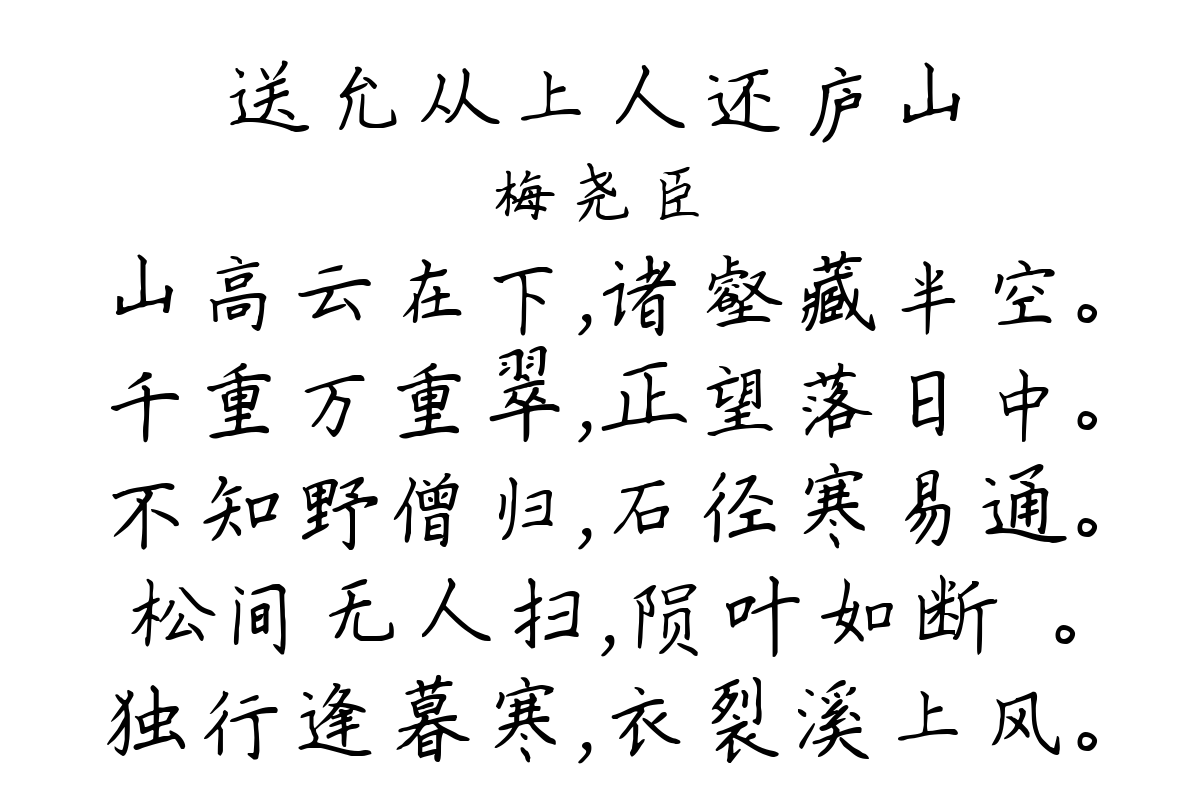 送允从上人还庐山
梅尧臣
山高云在下,诸壑藏半空。
千重万重翠,正望落日中。
不知野僧归,石径寒易通。
松间无人扫,陨叶如断 。
独行逢暮寒,衣裂溪上风。